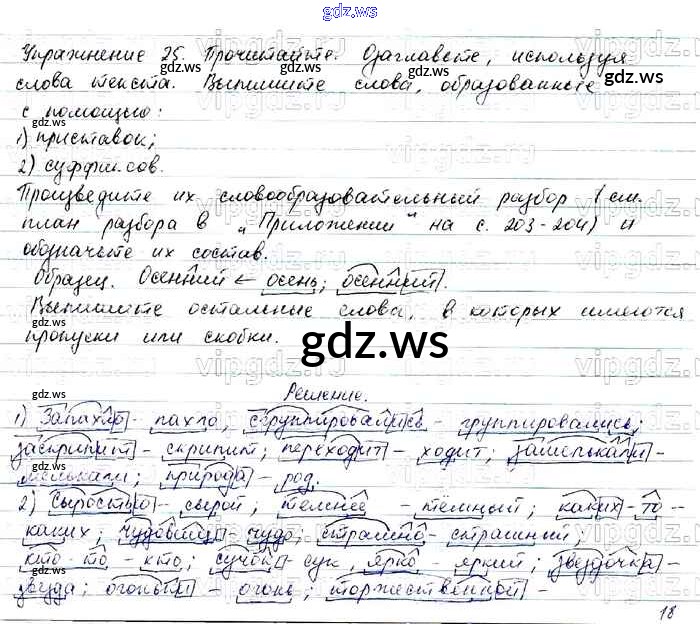 gdz.ws
Упражнение 25. Прочитайте. Озаглавьте, используя
слова текста. Выпишите слова, образованные
с помощью:
1) приставок;
2) суффиксов.
Произведите их словообразовательный разбор (см.
план разбора в „Приложении" на с. 203-204) и
обозначьте их состав.
Образец. Осенний ← осень; осенний.
Выпишите остальные слова, в которых имеются
пропуски или скобки.
gdz.ws
Решение.
1) Запахло - пахло, сгруппировались - группировались;
заскрипит - скрипит; переходит - ходит; замелькали -
мелькали; природа - род.
2) Сыростью - сырой; темнее - темный; каких-то -
каких; чудовищ - чудо; страшно - страшный;
кто-то - кто; сучок - сук, ярко - яркий; звездочка -
звезда; огоньки - огонь; торжественной -
18